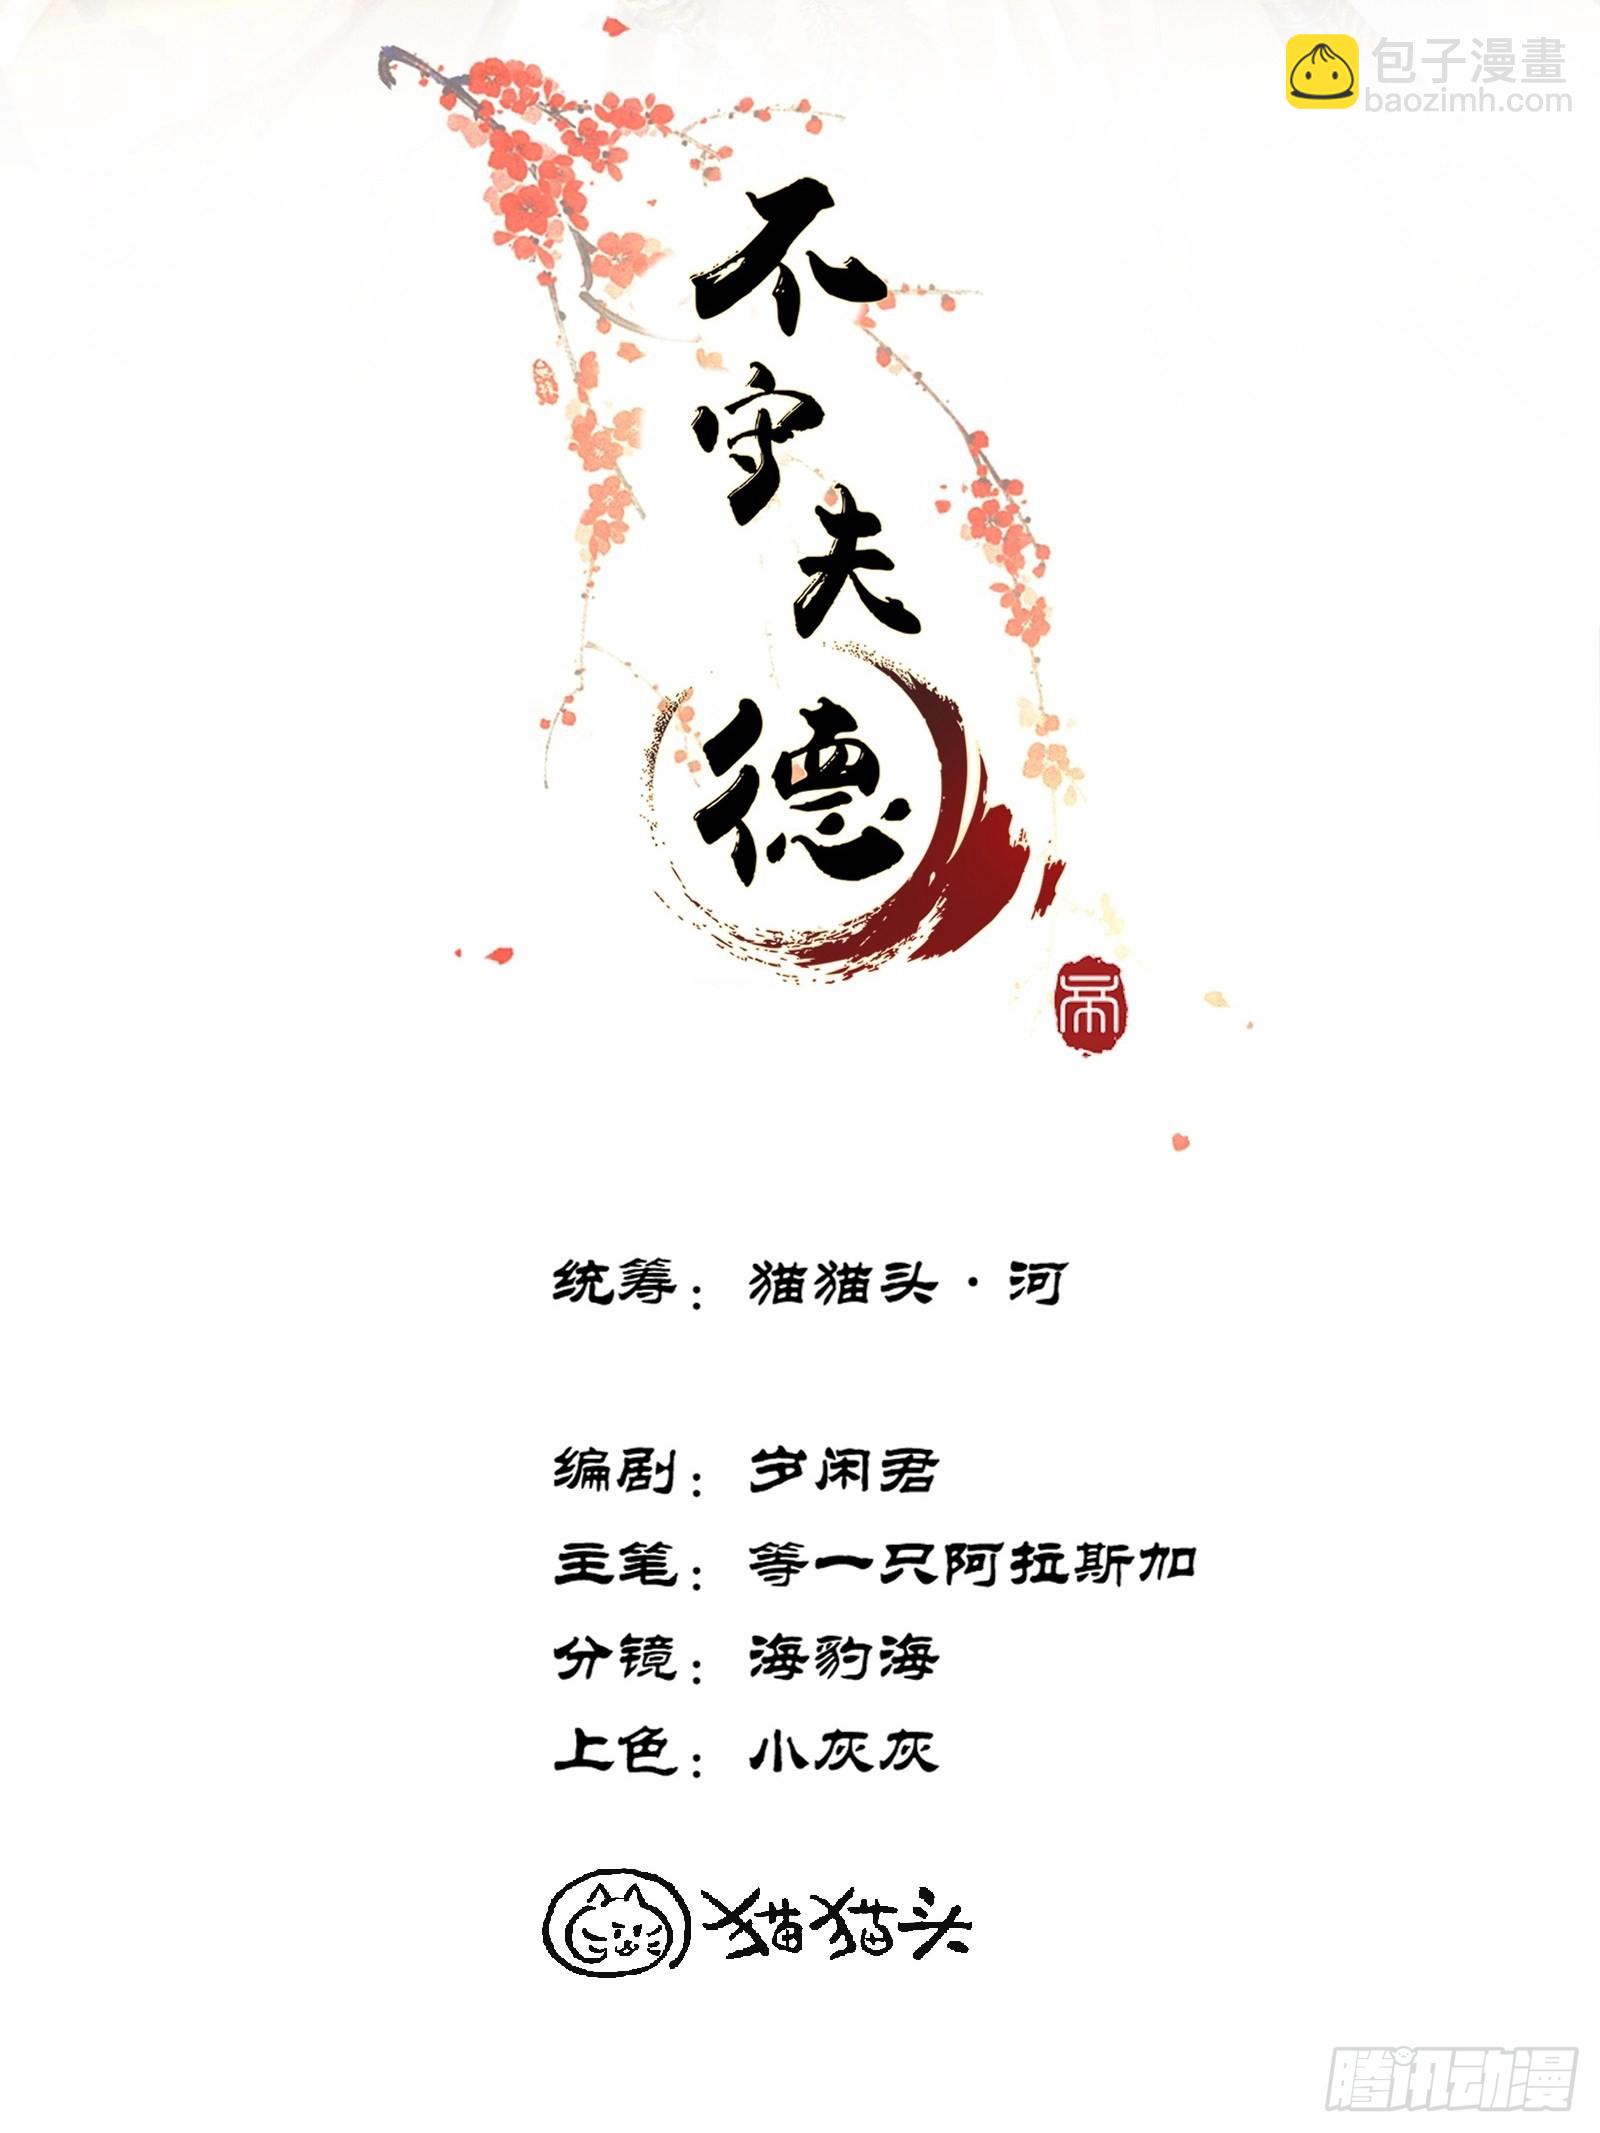 包子漫畫
baozimh.com
不
守
夫
德
帝
统筹：猫猫头·河
编剧：岁闲君
主笔：等一只阿拉斯加
分镜：海豹海
上色：小灰灰
猫猫头
腾讯动漫